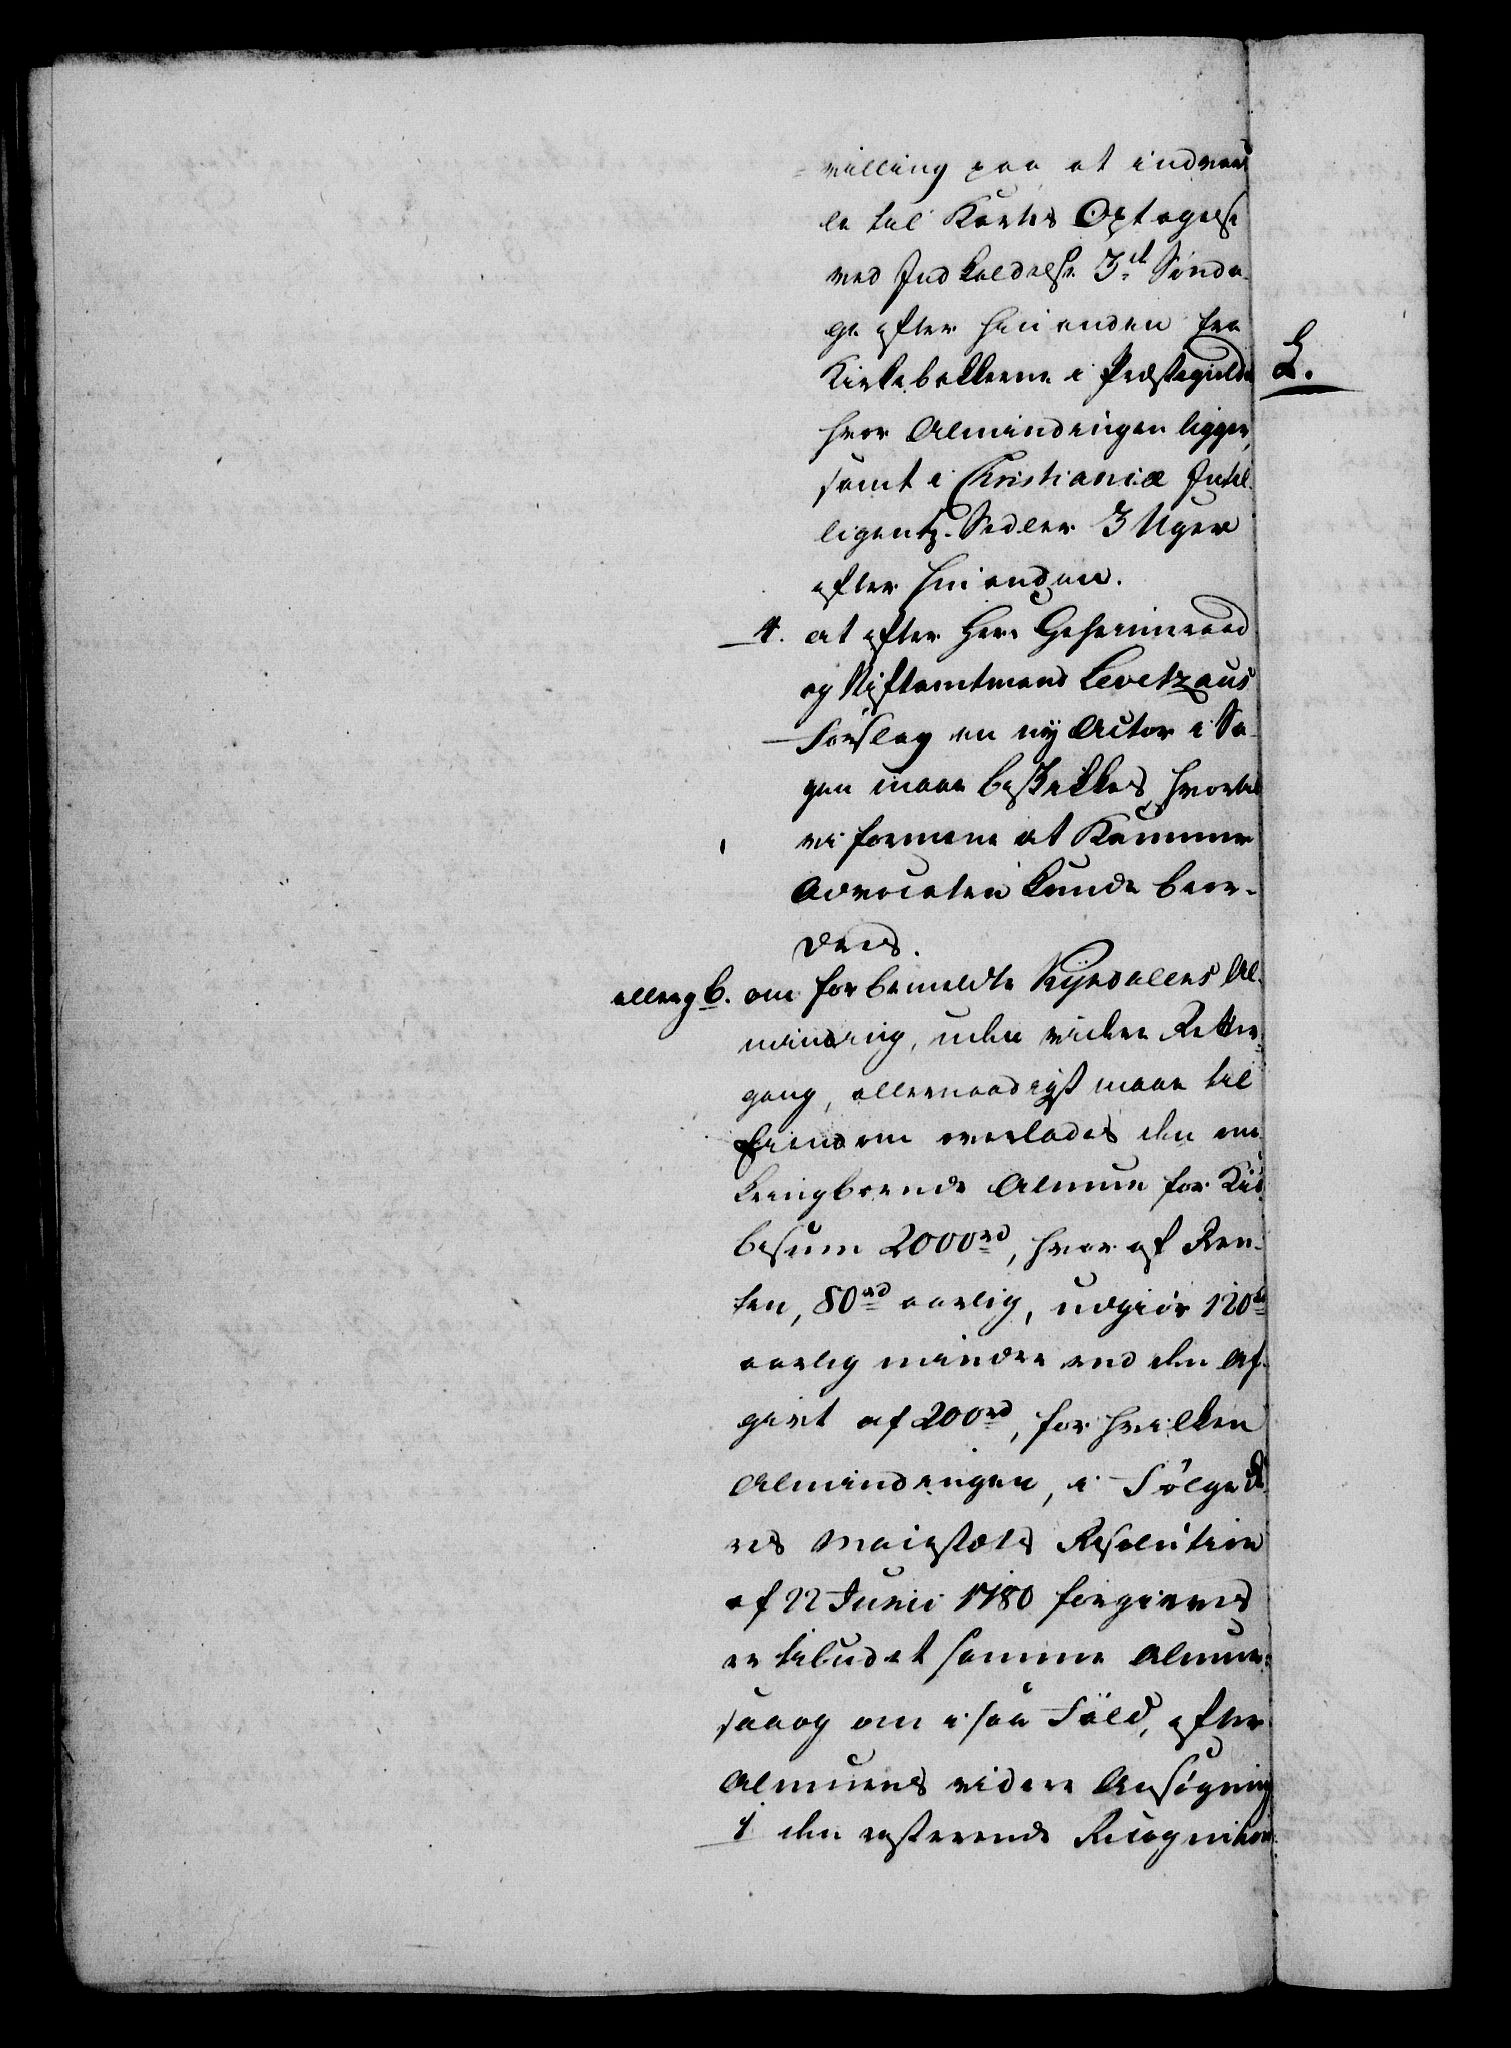 villing paa at indvar
le til Karts Optagelse
ved Indkaldelse 3de Sönda-
ge efter hinanden fra
Kirkebakkerne i Præstegieldet
hvor Almindingen ligger,
samt i Christianiæ Intel-
ligentz-Sedler 3 Uger
efter hinanden.
4. at efter Herr Geheimeraad
og Stiftamtmand Levetzaus
Forslag en ny Actor i Sa-
gen maae beskikkes, hvortil
vi formene at Kammer
Advocaten kunde beor-
dres.
elleg b. om forbemeldte Ryedalens Al-
minding, uden videre Retter-
gang, allernaadigst maae til
Eiendom overlades den om-
kringboende Almue for Kiö-
besum 2000rd, hvor af Ren-
ten, 80rd aarlig, udgiör 120rd
aarlig mindre end den Af-
givt af 200rd, for hvilken
Almindingen, i Fölge De-
res Maiestæts Resolution
af 22 Junii 1780 forgieves
er tilbudet samme Almue,
saa og om i saa Fald, efter
Almuens videre Ansögning
1 den resterende Recognition
L.